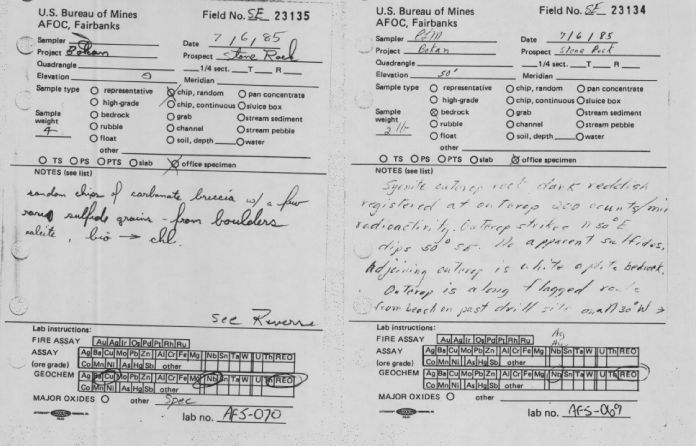 U.S. Bureau of Mines
AFOC, Fairbanks
Field No. SE 23135
Sampler
Date 7/6/85
Project Bokan
Prospect Stone Rock
Quadrangle
1/4 sect. T R
Elevation 0
Meridian
Sample type
representative
chip, random
pan concentrate
high-grade
chip, continuous
sluice box
Sample weight 4
bedrock
grab
stream sediment
rubble
channel
stream pebble
float
soil, depth
water
other
TS PS PTS slab office specimen
NOTES (see list)
random chips of carbonate breccia w/ a few
sulfide grains - from boulders
calcite, bio → chl.
See Reverse
Lab instructions:
FIRE ASSAY Au Ag Ir Os Pd Pt Rh Ru
ASSAY Ag Ba Cu Mo Pb Zn Al Cr Fe Mg Nb Sn Ta W U Th REO
(ore grade) Co Mn Ni As Hg Sb other
GEOCHEM Ag Ba Cu Mo Pb Zn Al Cr Fe Mg Nb Sn Ta W U Th REO
Co Mn Ni As Hg Sb other
MAJOR OXIDES other Spec
lab no. AF5-070
U.S. Bureau of Mines
AFOC, Fairbanks
Field No. SE 23134
Sampler
Date 7/6/85
Project Bokan
Prospect Stone Rock
Quadrangle
1/4 sect. T R
Elevation 50'
Meridian
Sample type
representative
chip, random
pan concentrate
high-grade
chip, continuous
sluice box
Sample weight 2
bedrock
grab
stream sediment
rubble
channel
stream pebble
float
soil, depth
water
other
TS PS PTS slab office specimen
NOTES (see list)
Syenite outcrop rock, dark reddish
registered at outcrop 200 counts/min
radioactivity. Outcrop strikes N 30°E
dips 50° SE. No apparent sulfides.
Adjoining outcrop is white aplite bedrock.
Outcrop is along flagged route
from beach on past drill site on a N30°W →
Lab instructions:
Ag
FIRE ASSAY Au Ag Ir Os Pd Pt Rh Ru
ASSAY Ag Ba Cu Mo Pb Zn Al Cr Fe Mg Nb Sn Ta W U Th REO
(ore grade) Co Mn Ni As Hg Sb other
GEOCHEM Ag Ba Cu Mo Pb Zn Al Cr Fe Mg Nb Sn Ta W U Th REO
Co Mn Ni As Hg Sb other
MAJOR OXIDES other
lab no. AF5-069